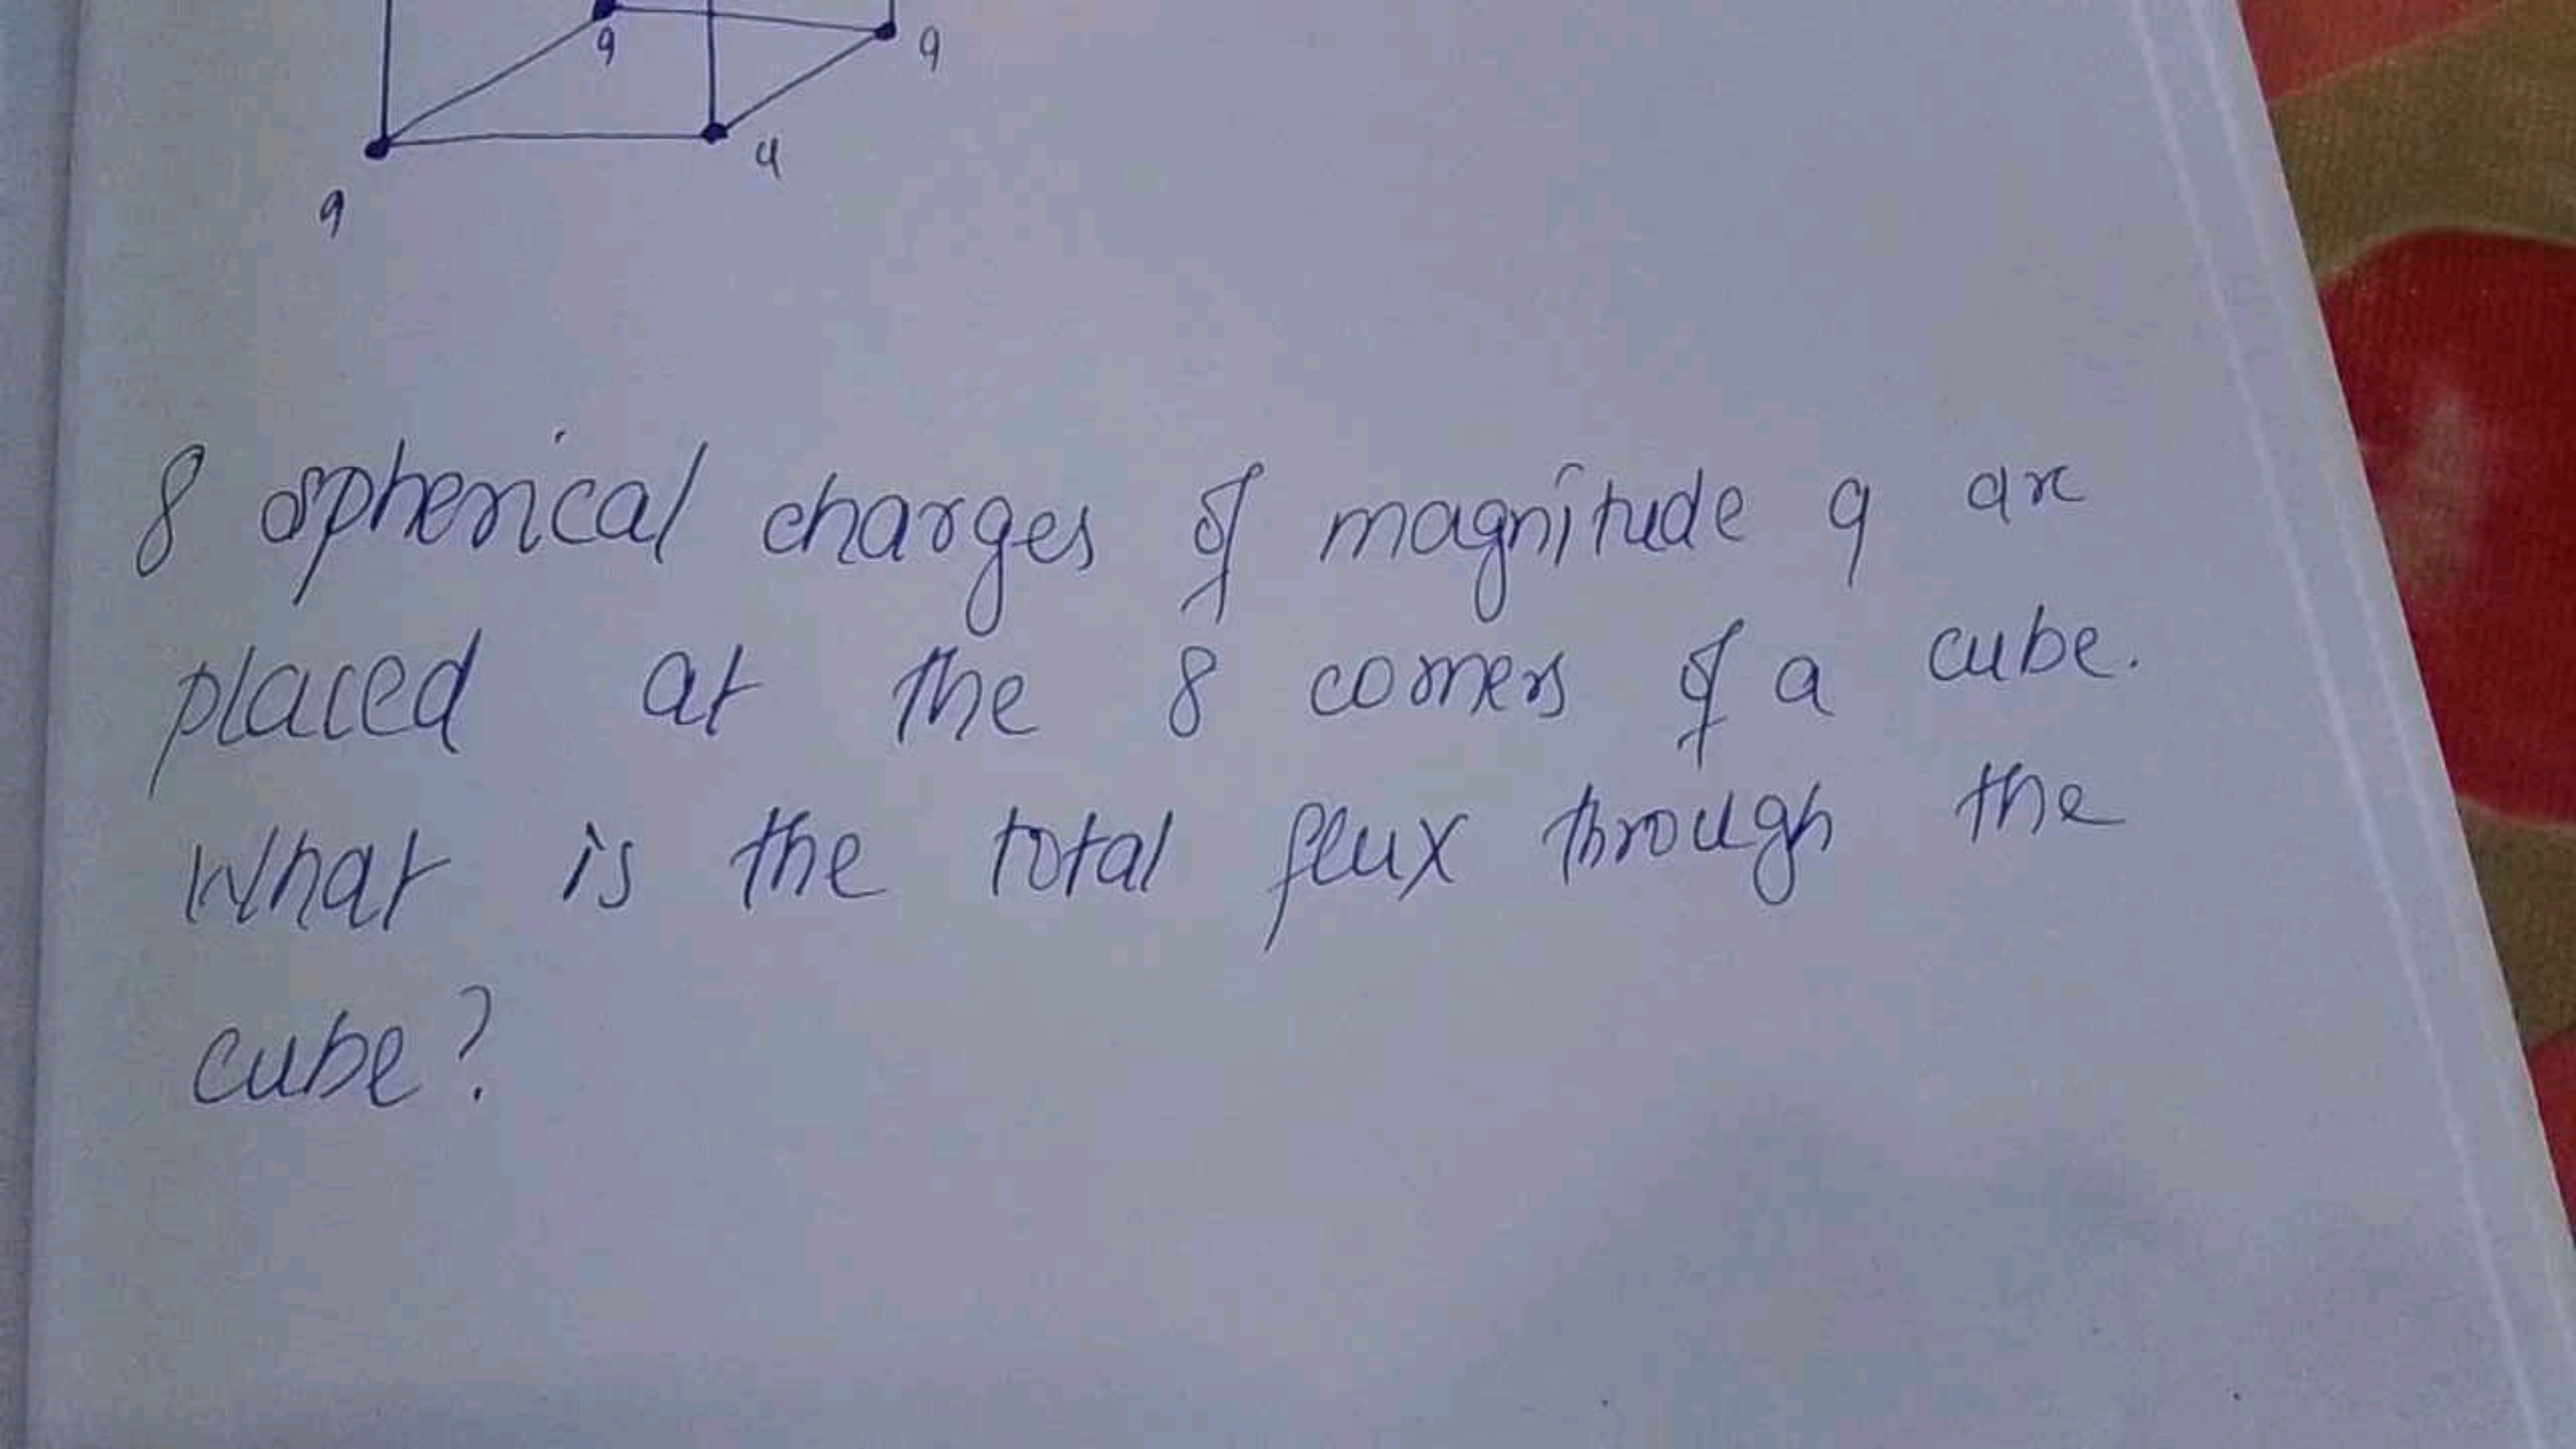 q q
q
q
8 spherical charges of magnitude q are
placed at the 8 corners of a cube.
What is the total flux through the
cube?